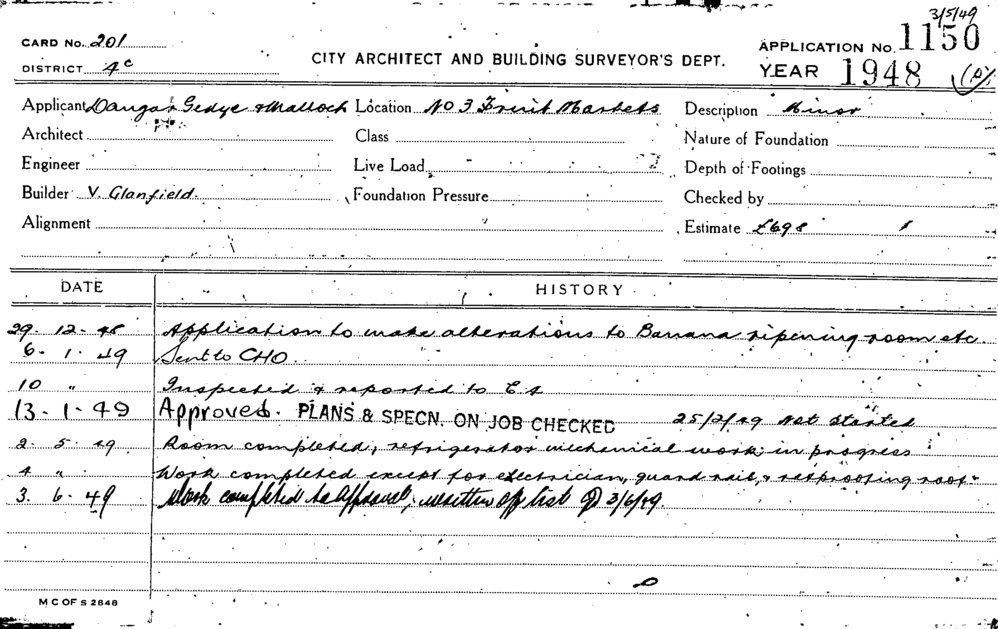 3/5/49
CARD No. 201 CITY ARCHITECT AND BUILDING SURVEYOR'S DEPT. APPLICATION No. 1150
DISTRICT 4c YEAR 1948
Applicant Dangar Gedye & Malloch Location No 3 Fruit Markets Description Minor
Architect Class Nature of Foundation
Engineer Live Load Depth of Footings
Builder V. Glanfield. Foundation Pressure Checked by
Alignment Estimate £698
DATE HISTORY
29. 12. 48 Application to make alterations to Banana ripening room etc.
6. 1. 49 Sent to CHO.
10 " Inspected & reported to CA
13-1-49 Approved. PLANS & SPECN. ON JOB CHECKED 25/2/49 Not Started
2. 5. 49 Room completed, refrigerator mechanical work in progress
4 " Work completed except for electrician, guard rail, & ratproofing roof.
3. 6. 49 Work completed to approval, written off list of 3/6/49.
M C OF S 2848